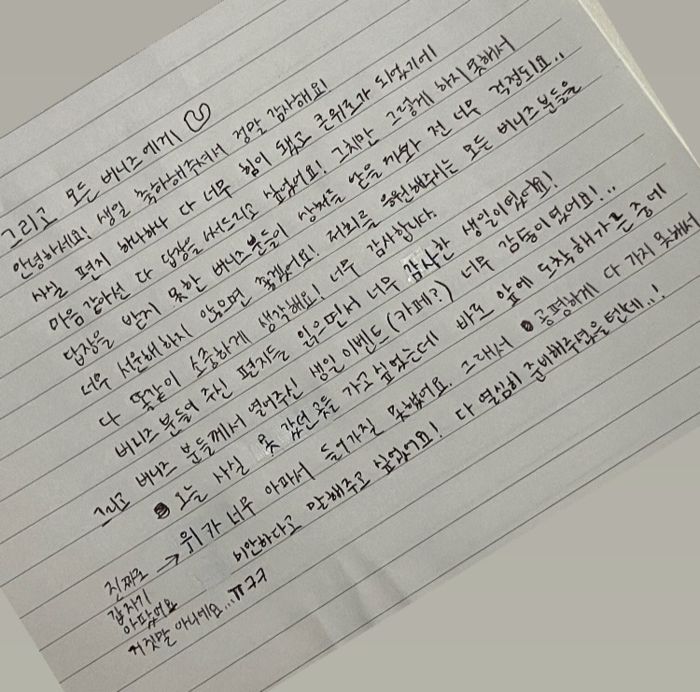 그리고 모든 버니즈에게 ♡
안녕하세요! 생일 축하해주셔서 정말 감사해요!
사실 편지 하나하나 다 너무 힘이 됐고 큰 위로가 되었기에
마음같아선 다 답장을 써드리고 싶었어요! 그치만 그렇게 하지 못해서
답장을 받지 못한 버니즈분들이 상처를 받을까봐 전 너무 걱정되요..
너무 서운해하지 않으면 좋겠어요! 저희를 응원해주시는 모든 버니즈분들을
다 똑같이 소중하게 생각해요! 너무 감사합니다.
버니즈분들이 주신 편지들 읽으면서 너무 감사한 생일이였어요!
그리고 버니즈 분들께서 열어주신 생일이벤트(카페?) 너무 감동이었어요!..
오늘 사실 못 갔던 곳들 가고싶었는데 바로 앞에 도착해가는 중에
→ 위가 너무 아파서 들어가질 못했어요. 그래서 공평하게 다 가지 못해서
미안하다고 말해주고 싶었어요! 다 열심히 준비해주셨을텐데..!
진짜로
갑자기
아팠어요
거짓말 아니에요...ㅠㅋㅋ